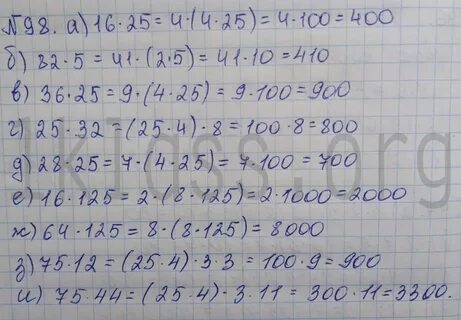 №98. а) 16·25 = 4·(4·25) = 4·100 = 400
б) 82·5 = 41·(2·5) = 41·10 = 410
в) 36·25 = 9·(4·25) = 9·100 = 900
г) 25·32 = (25·4)·8 = 100·8 = 800
д) 28·25 = 7·(4·25) = 7·100 = 700
е) 16·125 = 2·(8·125) = 2·1000 = 2000
ж) 64·125 = 8·(8·125) = 8000
з) 75·12 = (25·4)·3·3 = 100·9 = 900
и) 75·44 = (25·4)·3·11 = 300·11 = 3300.
iklass.org